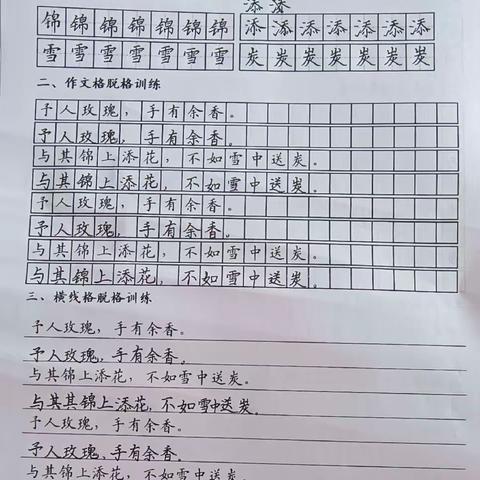 添添
锦锦锦锦锦锦锦 添添添添添添添
雪雪雪雪雪雪雪 炭炭炭炭炭炭炭
二、作文格脱格训练
予人玫瑰，手有余香。
予人玫瑰，手有余香。
与其锦上添花，不如雪中送炭。
与其锦上添花，不如雪中送炭。
予人玫瑰，手有余香。
予人玫瑰，手有余香。
与其锦上添花，不如雪中送炭。
与其锦上添花，不如雪中送炭。
三、横线格脱格训练
予人玫瑰，手有余香。
予人玫瑰，手有余香。
与其锦上添花，不如雪中送炭。
与其其锦上添花，不如雪中送炭。
予人玫瑰，手有余香。
予人玫瑰，手有余香。
与其锦上添花，不如雪中送炭。